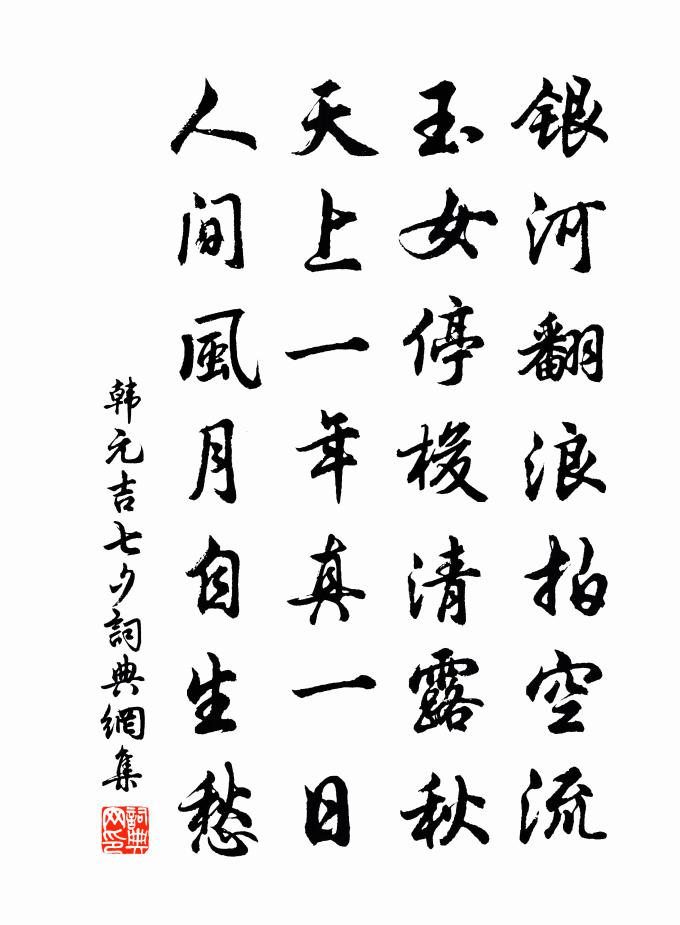 銀河翻浪拍空流
玉女停梭清露秋
天上一年真一日
人间風月自生愁
韩元吉七夕詞典網集
詞典网印